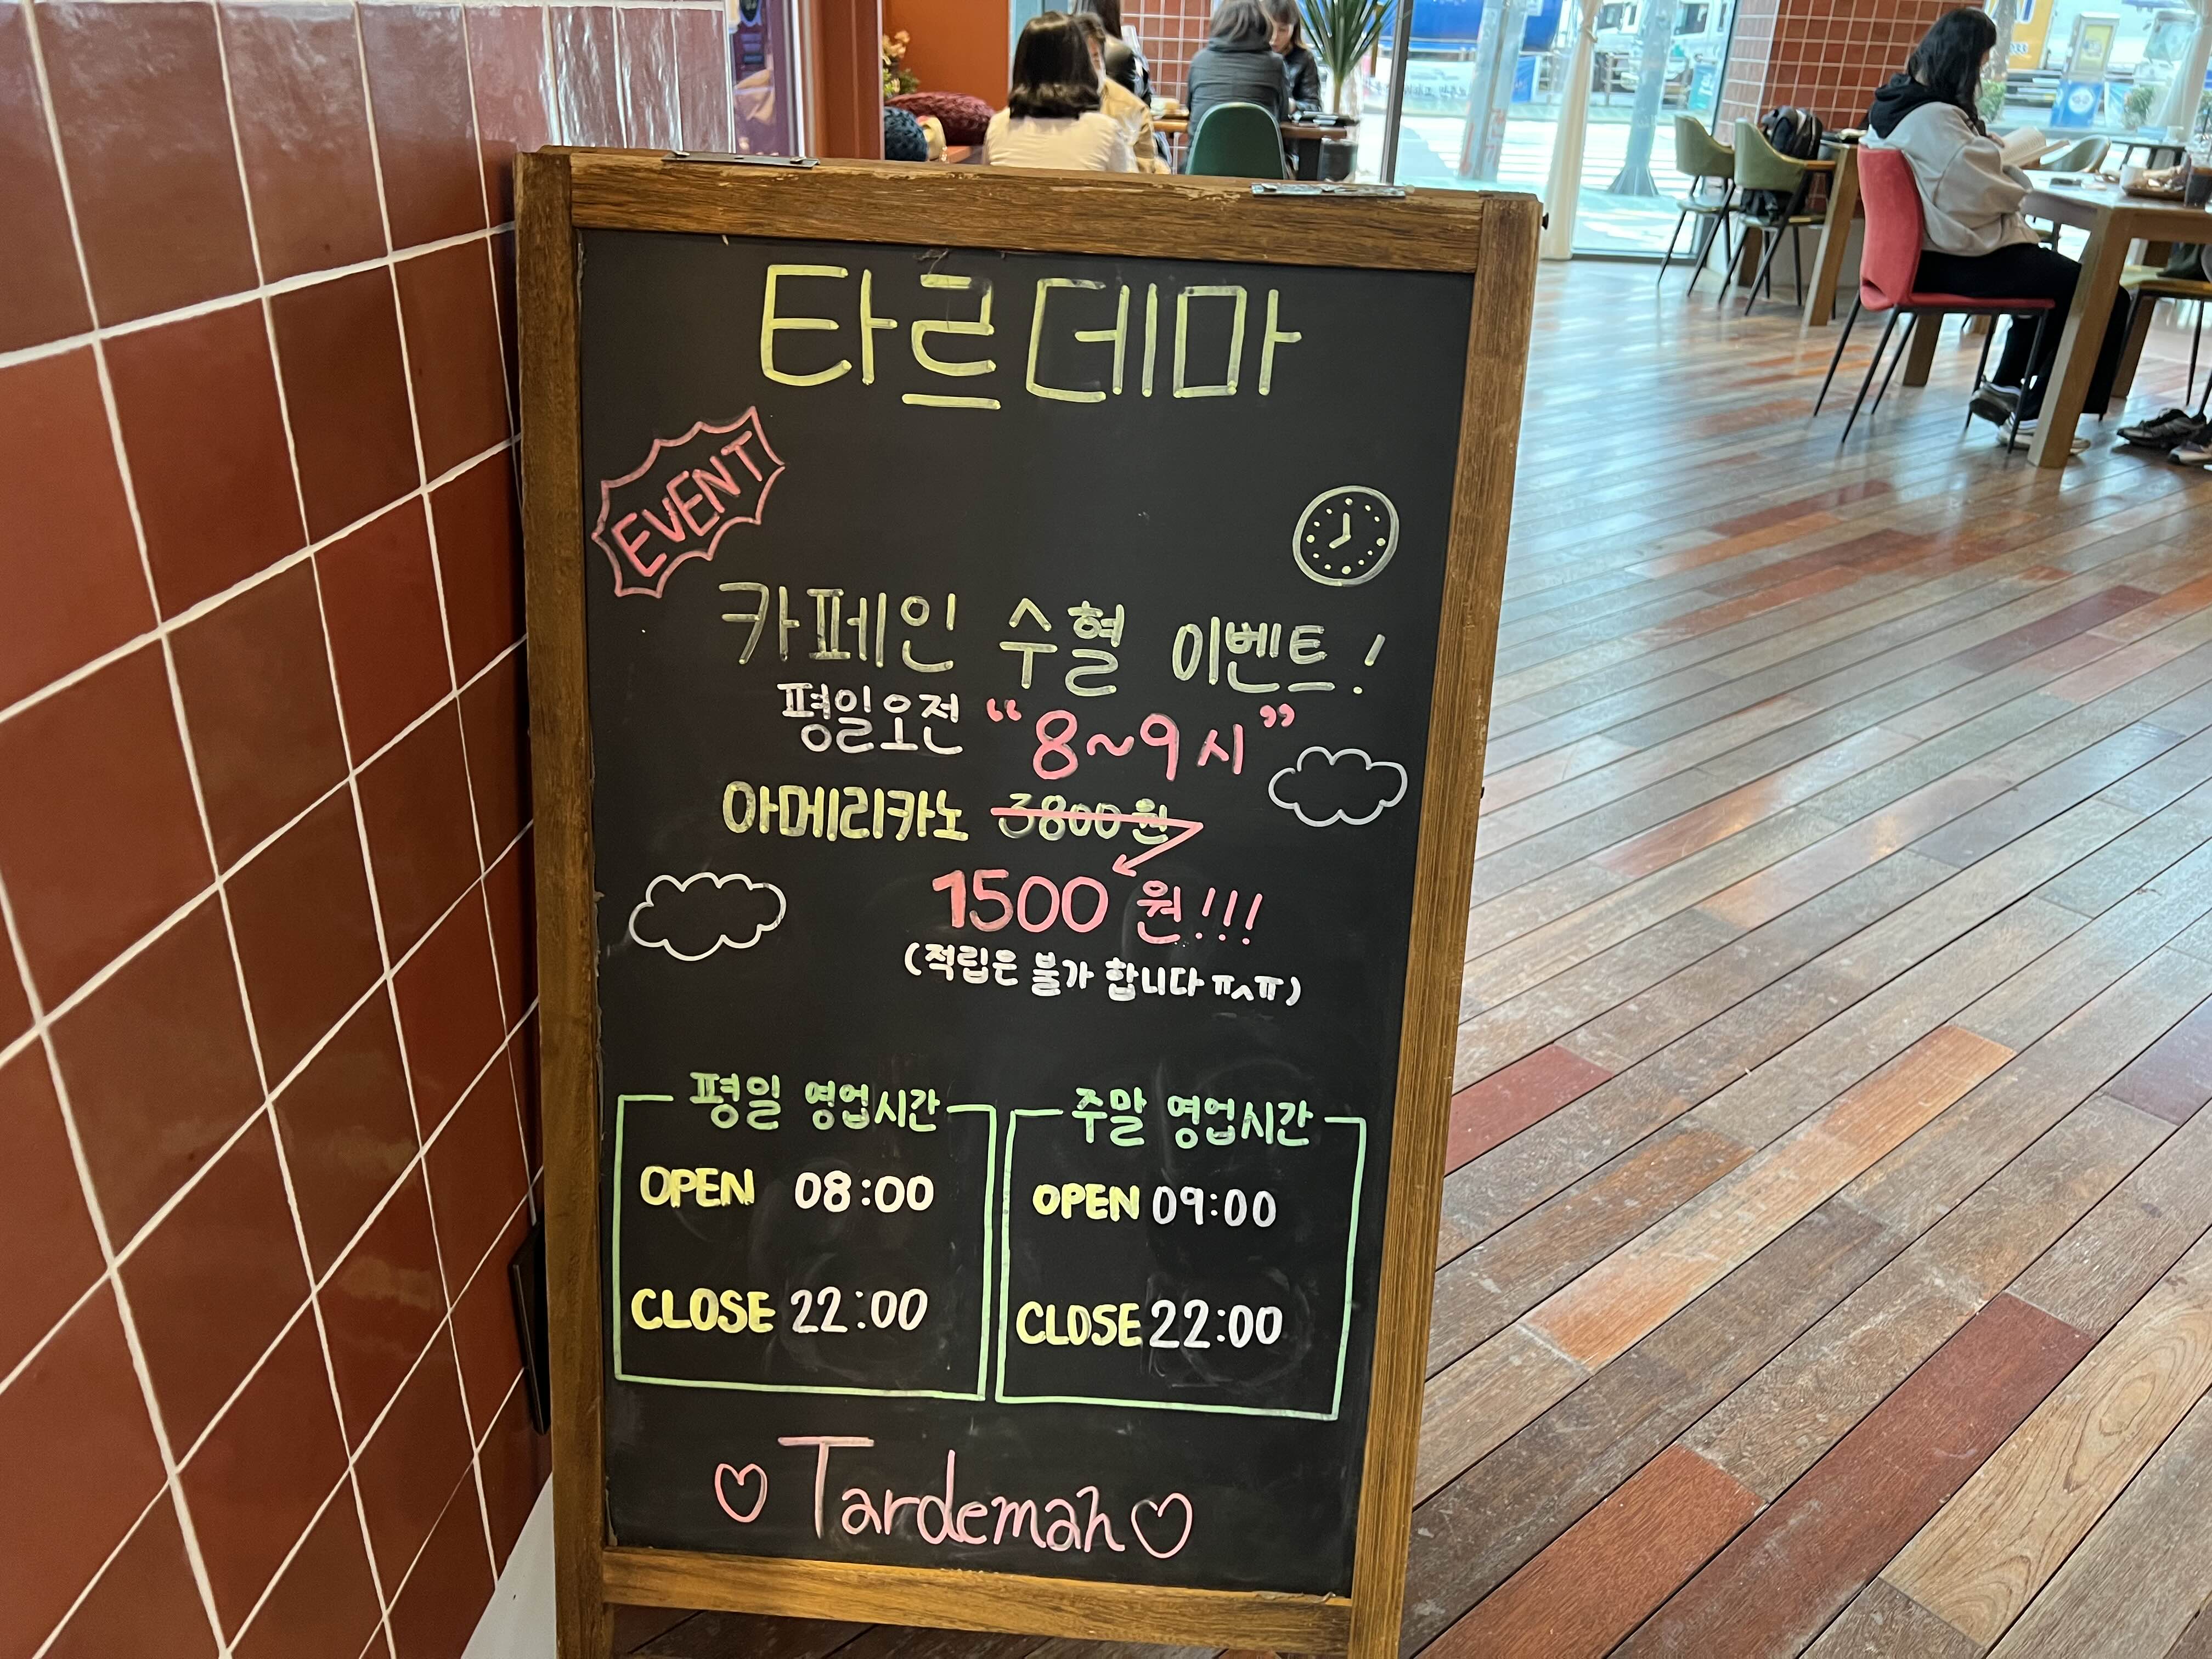 타르데마
EVENT
카페인 수혈 이벤트!
평일오전 “8~9시”
아메리카노 3800원
1500원!!!
(적립은 불가 합니다 ㅠ^ㅠ)
평일 영업시간
OPEN 08:00
CLOSE 22:00
주말 영업시간
OPEN 09:00
CLOSE 22:00
♡ Tardemah ♡